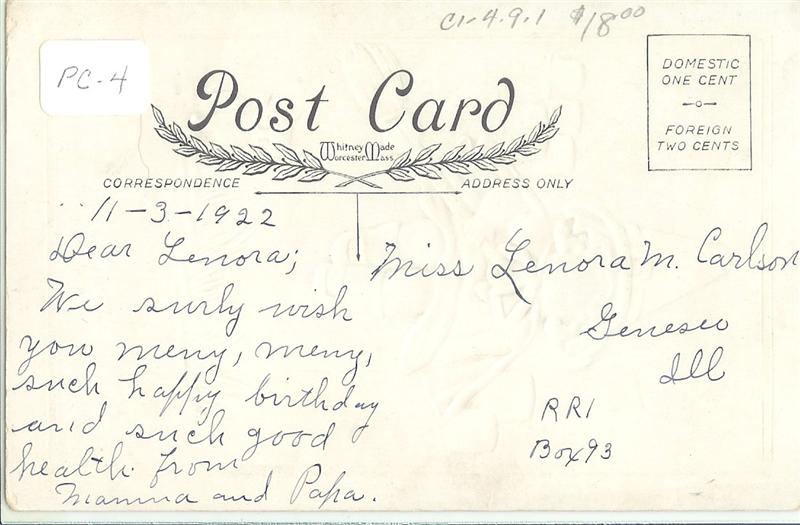 C1-4.9.1 $18.00
PC-4
Post Card
Whitney Made
Worcester Mass
DOMESTIC
ONE CENT
FOREIGN
TWO CENTS
CORRESPONDENCE
ADDRESS ONLY
11-3-1922
Dear Lenora;
We surly wish
you meny, meny,
such happy birthday
and such good
health. from
Mamma and Papa.
Miss Lenora M. Carlson
Geneseo
Ill
RR1
Box 93